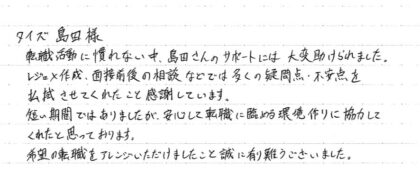 タイズ 島田 様
転職活動に慣れない中、島田さんのサポートには大変助けられました。
レジュメ作成、面接前後の相談などでは多くの疑問点・不安点を
払拭させてくれたこと感謝しています。
短い期間ではありましたが、安心して転職に臨める環境作りに協力して
くれたと思っております。
希望の転職をアレンジいただけましたこと誠に有難うございました。